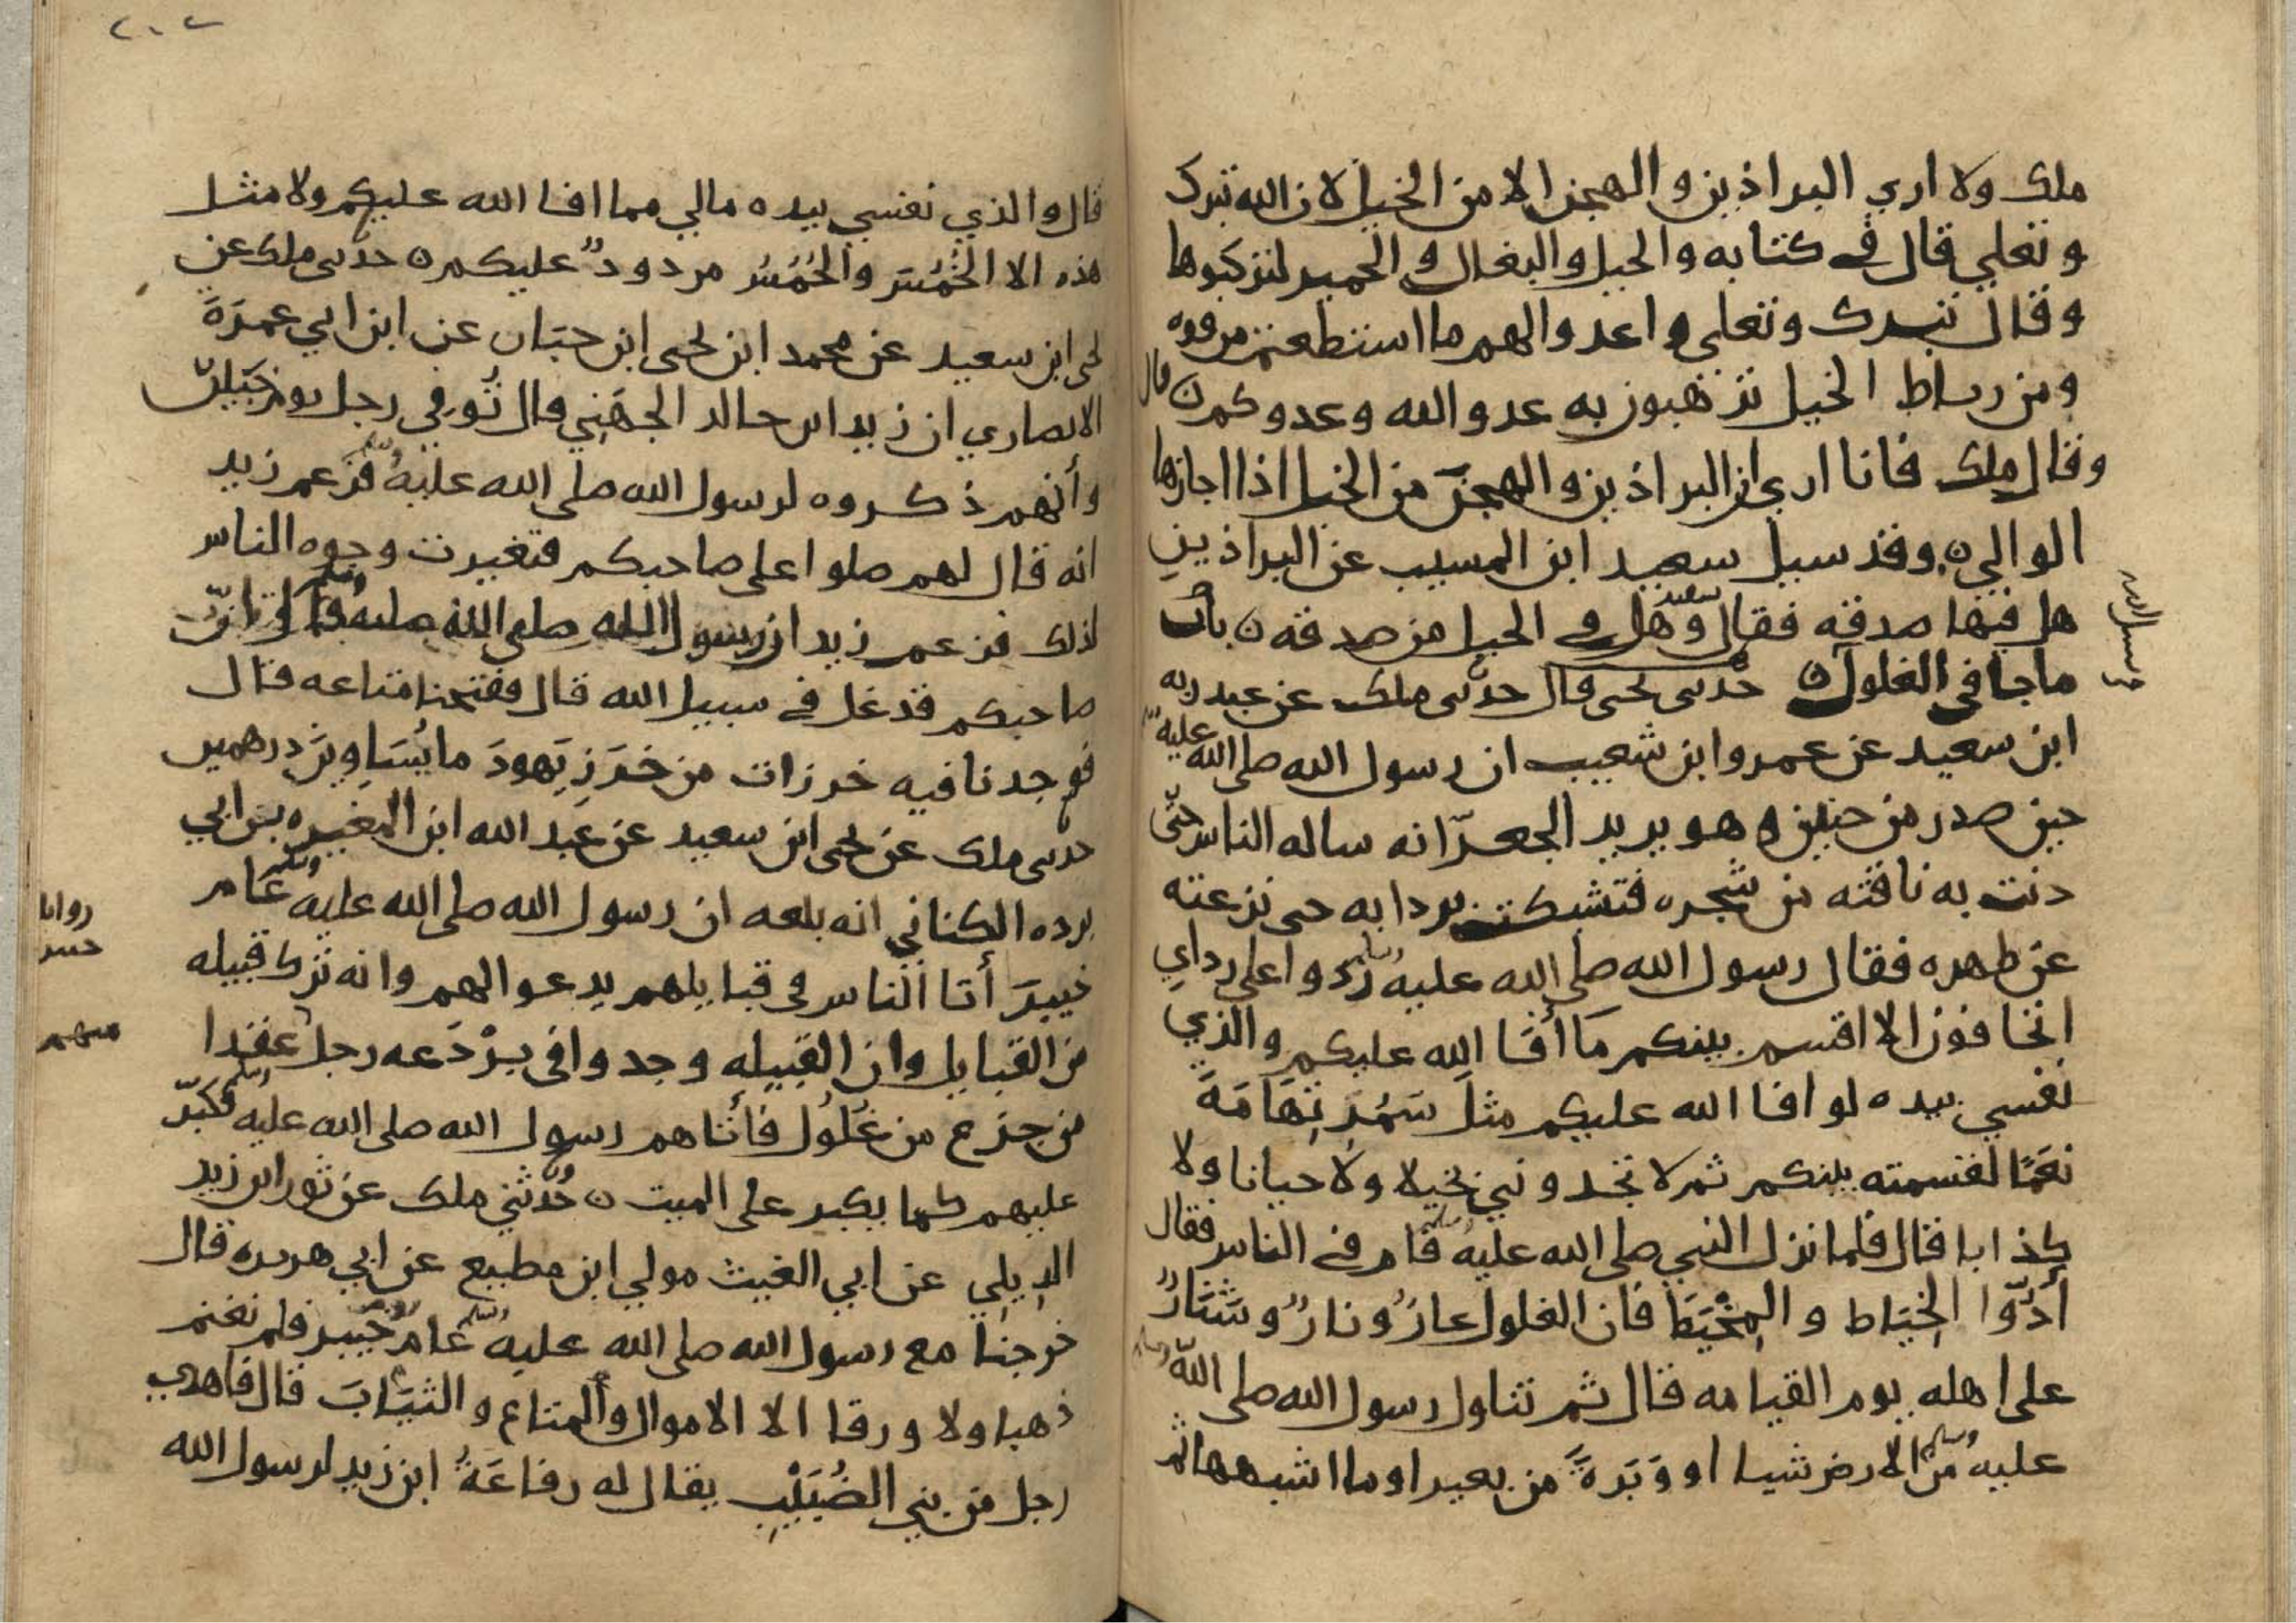 ملك ولا اري البراذين والهجن الا من الخيل لان الله تبرك
وتعلي قال في كتابه والخيل والبغال والحمير لتركبوها
وقال تبرك وتعلي واعدوا لهم ما استطعتم من قوه
ومن رباط الخيل ترهبون به عدو الله وعدوكم ن قال
وقال ملك فانا اري ان البراذين والهجن من الخيل اذا اجازها
الوالي ن وقد سيل سعيد ابن المسيب عن البراذين
هل فيها صدقه فقال سعيد وهل في الخيل من صدقه ن باب
ما جا في الغلول ن حدثني يحيى قال حدثني ملك عن عبد ربه
ابن سعيد عن عمرو ابن شعيب ان رسول الله صلى الله عليه وسلم
حين صدر من حنين وهو يريد الجعرّانه ساله الناس حتّى
دنت به ناقته من شجره فتشبكت بردايه حتى نزعته
عن ظهره فقال رسول الله صلى الله عليه وسلم ردوا على رداي
اتخافون الا اقسم بينكم مَا أفا الله عليكم والذي
نفسي بيده لو افا الله عليكم مثلَ سَمُرِ تِهَامَةَ
نعَمًا لقسمته بينكم ثم لا تجدونني بخيلا ولا جبانا ولا
كذابا قال فلما نزل النبي صلى الله عليه وسلم قام في الناس فقال
أدُّوا الخِيَاط والمِخْيَطَ فان الغلول عارٌ ونارٌ وشَنَارٌ
على اهله يوم القيامه قال ثم تناول رسول الله صلى الله
عليه وسلم من الارض شيا او وَبَرةً من بعير او ما اشبهها ثم
٢٠٢
قال والذي نفسي بيده مالي مما افا الله عليكم ولا مثل
هذه الا الخُمُسَ والخُمُسُ مردودٌ عليكم ن حدثني ملك عن
يحيى ابن سعيد عن محمد ابن يحيى ابن حبّان عن ابن ابي عمرَةَ
الانصاري ان زيد ابن خالد الجهَني قال تُوفي رجل يوم خيبر
وأنهم ذكروه لرسول الله صلى الله عليه وسلم فزعم زيد
انه قال لهم صلوا على صاحبكم فتغيرت وجوه الناس
لذلك فزعم زيد ان رسول الله صلى الله عليه وسلم قال انّ
صاحبكم قد غل في سبيل الله قال ففتحنا متاعه قال
فوجدنا فيه خرزات من خَرَزِ يَهودَ ما يُسَاوِينَ درهمين
حدثني ملك عن يحيى ابن سعيد عن عبد الله ابن المغيره بن ابي
برده الكناني انه بلغه ان رسول الله صلى الله عليه وسلم عَام
خيبرَ أتا الناس في قبايلهم يدعوا لهم وانه ترك قبيله
من القبايل وان القبيله وجدوا في بَرْدَعه رجل عقدا
من جزع من غُلُول فأتاهم رسول الله صلى الله عليه وسلم فكبّر
عليهم كما يكبر على الميت ن حَدّثني ملك عن ثور ابن زيد
الدِيلي عن ابي الغيث مولي ابن مطيع عن ابي هريره قال
خرجنا مع رسول الله صلى الله عليه وسلم عَام خيبر فلم نغنم
ذهبا ولا ورقا الا الاموال والمتاع والثيَابَ قال فاهدي
رجل من بني الضُبَيْبِ يقال له رفاعَةُ ابن زيد لرسول الله